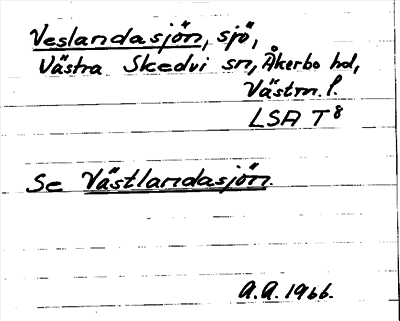 Veslandasjön, sjö,
Västra Skedvi sn, Åkerbo hd,
Västm. l.
LSA T 8
Se Västlandasjön.
A.A. 1966.